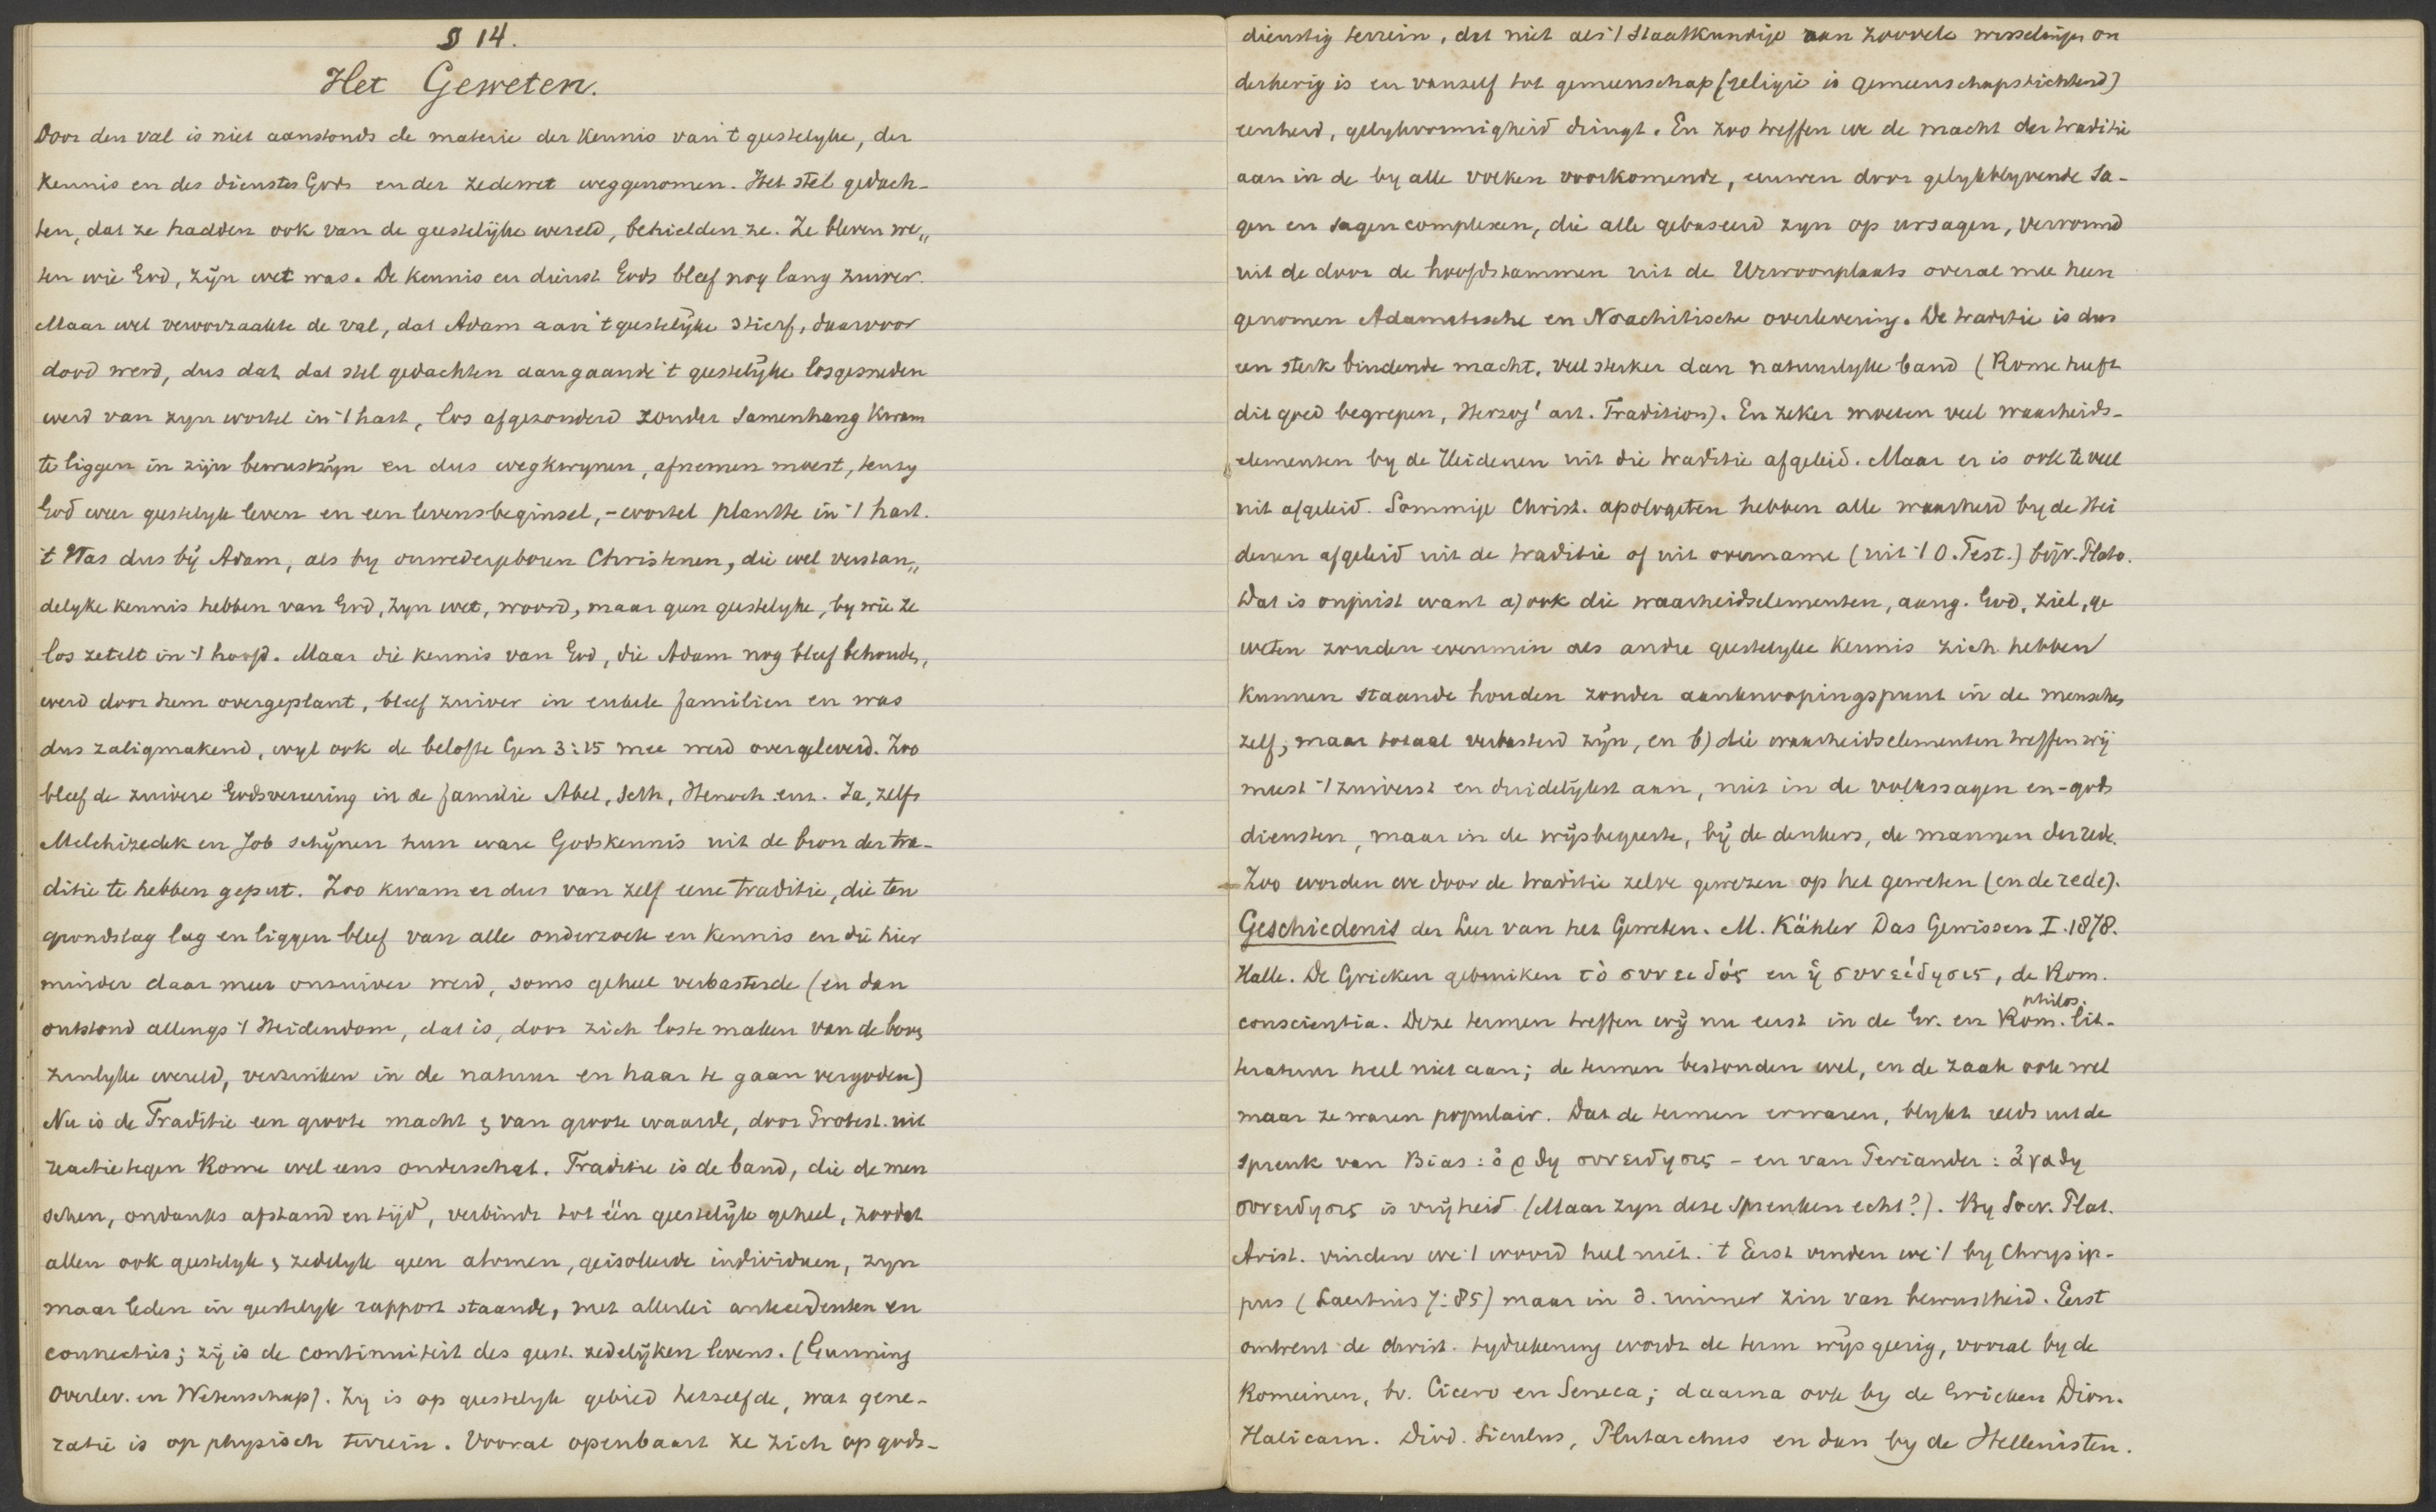 § 14.
Het Geweten.
Door den val is niet aanstonds de materie der kennis van 't geestelyke, der
kennis en des dienstes Gods en der zedewet weggenomen. Het stel gedach-
ten, dat ze hadden ook van de geestelijke wereld, behielden ze. Ze bleven we„
ten wie God, zijn wet was. De kennis en dienst Gods bleef nog lang zuiver.
Maar wel veroorzaakte de val, dat Adam aan 't geestelijke stierf, daarvoor
dood werd, dus dat dat stel gedachten aangaande 't geestelijke losgesneden
werd van zyn wortel in 't hart, los afgezonderd zonder samenhang kwam
te liggen in zijn bewustzijn en dus wegkwynen, afnemen moest, tenzy
God weer geestelyk leven en een levensbeginsel, -wortel plantte in 't hart.
't Was dus bij Adam, als by onwedergeboren Christenen, die wel verstan„
delyke kennis hebben van God, zyn wet, woord, maar geen geestelyke, by wie ze
los zetelt in 't hoofd. Maar die kennis van God, die Adam nog bleef behouden,
werd door hem overgeplant, bleef zuiver in enkele familien en was
dus zaligmakend, wyl ook de belofte Gen 3:15 mee werd overgeleverd. Zoo
bleef de zuivere Godsvereering in de familie Abel, Seth, Henoch enz. Ja, zelfs
Melchizedek en Job schijnen hun ware Godskennis uit de bron der tra-
ditie te hebben geput. Zoo kwam er dus van zelf eene traditie, die ten
grondslag lag en liggen bleef van alle onderzoek en kennis en die hier
minder daar meer onzuiver werd, soms geheel verbasterde (en dan
ontstond allengs 't Heidendom, dat is, door zich los te maken van de boven
zinlyke wereld, verzinken in de natuur en haar te gaan vergoden)
Nu is de Traditie een groote macht & van groote waarde, door Protest. uit
reactie tegen Rome wel eens onderschat. Traditie is de band, die de men
schen, ondanks afstand en tijd, verbindt tot één geestelijk geheel, zoodat
allen ook geestelyk & zedelyk geen atomen, geisoleerde individuen, zyn
maar leden in geestelyk rapport staande, met allerlei antecedenten en
connecties; zij is de continuiteit des geest. zedelijken levens. (Gunning
Overlev. en Wetenschap). Zy is op geestelyk gebied hetzelfde, wat gene-
ratie is op physisch terrein. Vooral openbaart ze zich op gods-
dienstig terrein, dat niet als 't staatkundige aan zoovele wisselingen on
derhevig is en vanzelf tot gemeenschap (religie is gemeenschapstichtend)
eenheid, gelykvormigheid dringt. En zoo treffen we de macht der traditie
aan in de by alle volken voorkomende, eeuwen door gelykblyvende Sa-
gen en sagencomplexen, die alle gebaseerd zyn op ursagen, verrormd
uit de door de hoofdstammen uit de Urwoonplaats overal mee heen
genomen Adamitische en Noachitische overlevering. De traditie is dus
een sterk bindende macht, veel sterker dan natuurlyke band (Rome heeft
dit goed begrepen, Herzog' art. Tradition). En zeker moeten veel waarheids-
elementen by de Heidenen uit die traditie afgeleid. Maar er is ook te veel
uit afgeleid. Sommige Christ. apologeten hebben alle waarheid by de Hei
denen afgeleid uit de traditie of uit overname (uit 't O. Test.) bijv. Plato.
Dat is onjuist want a) ook die waarheidselementen, aang. God, ziel, ge
weten zouden evenmin als andre geestelyke kennis zich hebben
kunnen staande houden zonder aanknoopingspunt in de menschen
zelf, maar totaal verbasterd zijn, en b) die waarheidselementen treffen wij
meest 't zuiverst en duidelijkst aan, niet in de volkssagen en -gods
diensten, maar in de wijsbegeerte, bij de denkers, de mannen der rede.
Zoo worden we door de traditie zelve gewezen op het geweten (en de rede).
Geschiedenis der Leer van het Geweten. M. Kähler Das Gewissen I. 1878.
Halle. De Grieken gebruiken τὸ συνειδός en ἡ συνείδησις, de Rom.
conscientia. Deze termen treffen wij nu eerst in de Gr. en Rom. philos. lit-
teratuur heel niet aan; de termen bestonden wel, en de zaak ook wel
maar ze waren populair. Dat de termen er waren, blykt reeds uit de
spreuk van Bias: ὀρθη συνειδησις - en van Periander: ἀγαθη
συνειδησις is vrijheid (Maar zyn deze spreuken echt?). By Socr. Plat.
Arist. vinden we 't woord heel niet. 't Eerst vinden we 't by Chrysip-
pus (Laertius 7:85) maar in d. ruimer zin van bewustheid. Eerst
omtrent de christ. tydrekening wordt de term wijsgeerig, vooral by de
Romeinen, bv. Cicero en Seneca; daarna ook by de Grieken Dion.
Halicarn. Diod. Siculus, Plutarchus en dan by de Hellenisten.